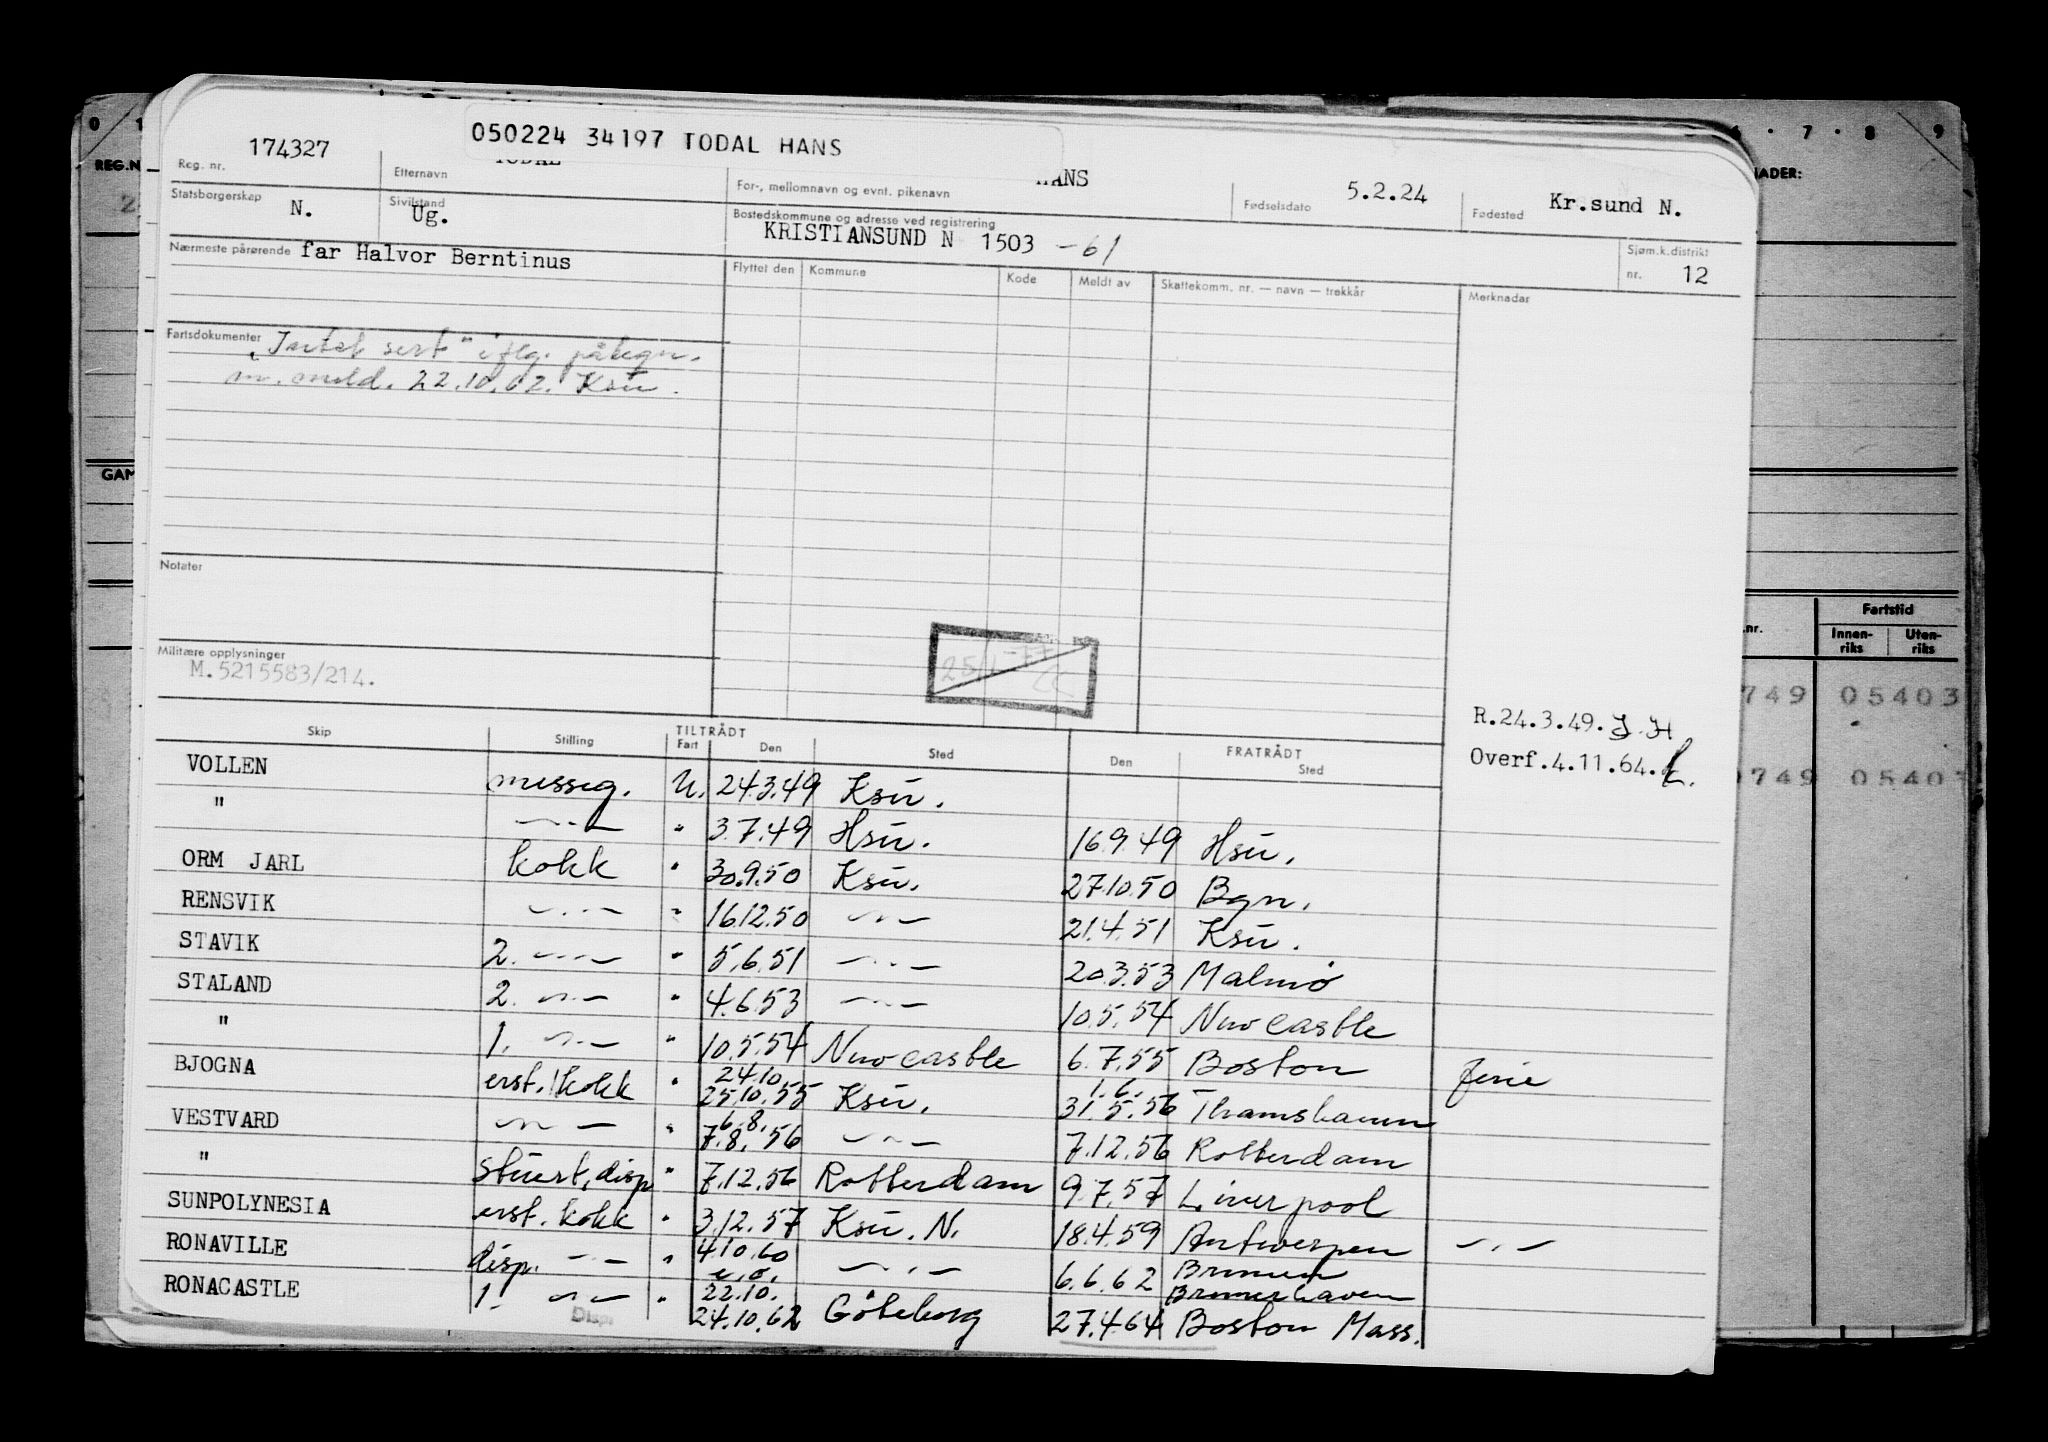 050224 34197 TODAL HANS
Reg. nr. 174327
Etternavn TODAL
For-, mellomnavn og evnt. pikenavn HANS
Fødselsdato 5.2.24
Fødested Kr.sund N.
Statsborgerskap N.
Sivilstand Ug.
Bostedskommune og adresse ved registrering
KRISTIANSUND N 1503 -61
Sjøm.k.distrikt nr. 12
Nærmeste pårørende far Halvor Berntinus
Flyttet den Kommune Kode Meldt av Skattekomm. nr. — navn — trekkår Merknader
Fartsdokumenter "Intet sert" iflg. påtegn.
m. meld. 22.10.62. Ksu.
Notater
25/1-77
Militære opplysninger
M.5215583/214.
R.24.3.49.
Overf.4.11.64.
TILTRÅDT FRATRÅDT
Skip Stilling Fart Den Sted Den Sted
VOLLEN messeg. U. 24.3.49 Ksu.
" —"— " 3.7.49 Hsu. 16.9.49 Hsu.
ORM JARL kokk " 30.9.50 Ksu. 27.10.50 Bgn.
RENSVIK —"— " 16.12.50 —"— 21.4.51 Ksu.
STAVIK 2. —"— " 5.6.51 —"— 20.3.53 Malmö
STALAND 2. —"— " 4.6.53 —"— 10.5.54 Newcastle
" 1. —"— " 10.5.54 Newcastle 6.7.55 Boston ferie
BJOGNA erst. kokk " 24.10 25.10.55 Ksu. 1.6. 31.5.56 Thamshavn
VESTVARD —"— " 6.8. 7.8.56 —"— 7.12.56 Rotterdam
" stuert, disp " 7.12.56 Rotterdam 9.7.57 Liverpool
SUNPOLYNESIA erst. kokk " 3.12.57 Ksu. N. 18.4.59 Antwerpen —"—
RONAVILLE disp. —"— " 4.10.60 e.o. —"— 6.6.62 Bremen Bremerhaven
RONACASTLE 1. —"— " 22.10. 24.10.62 Göteborg 27.4.64 Boston Mass.
Disp.
0 1 7 · 8 9
REG.N
NADER:
GAM
Fartstid
.nr. Innen-riks Uten-riks
749 05403
749 05403